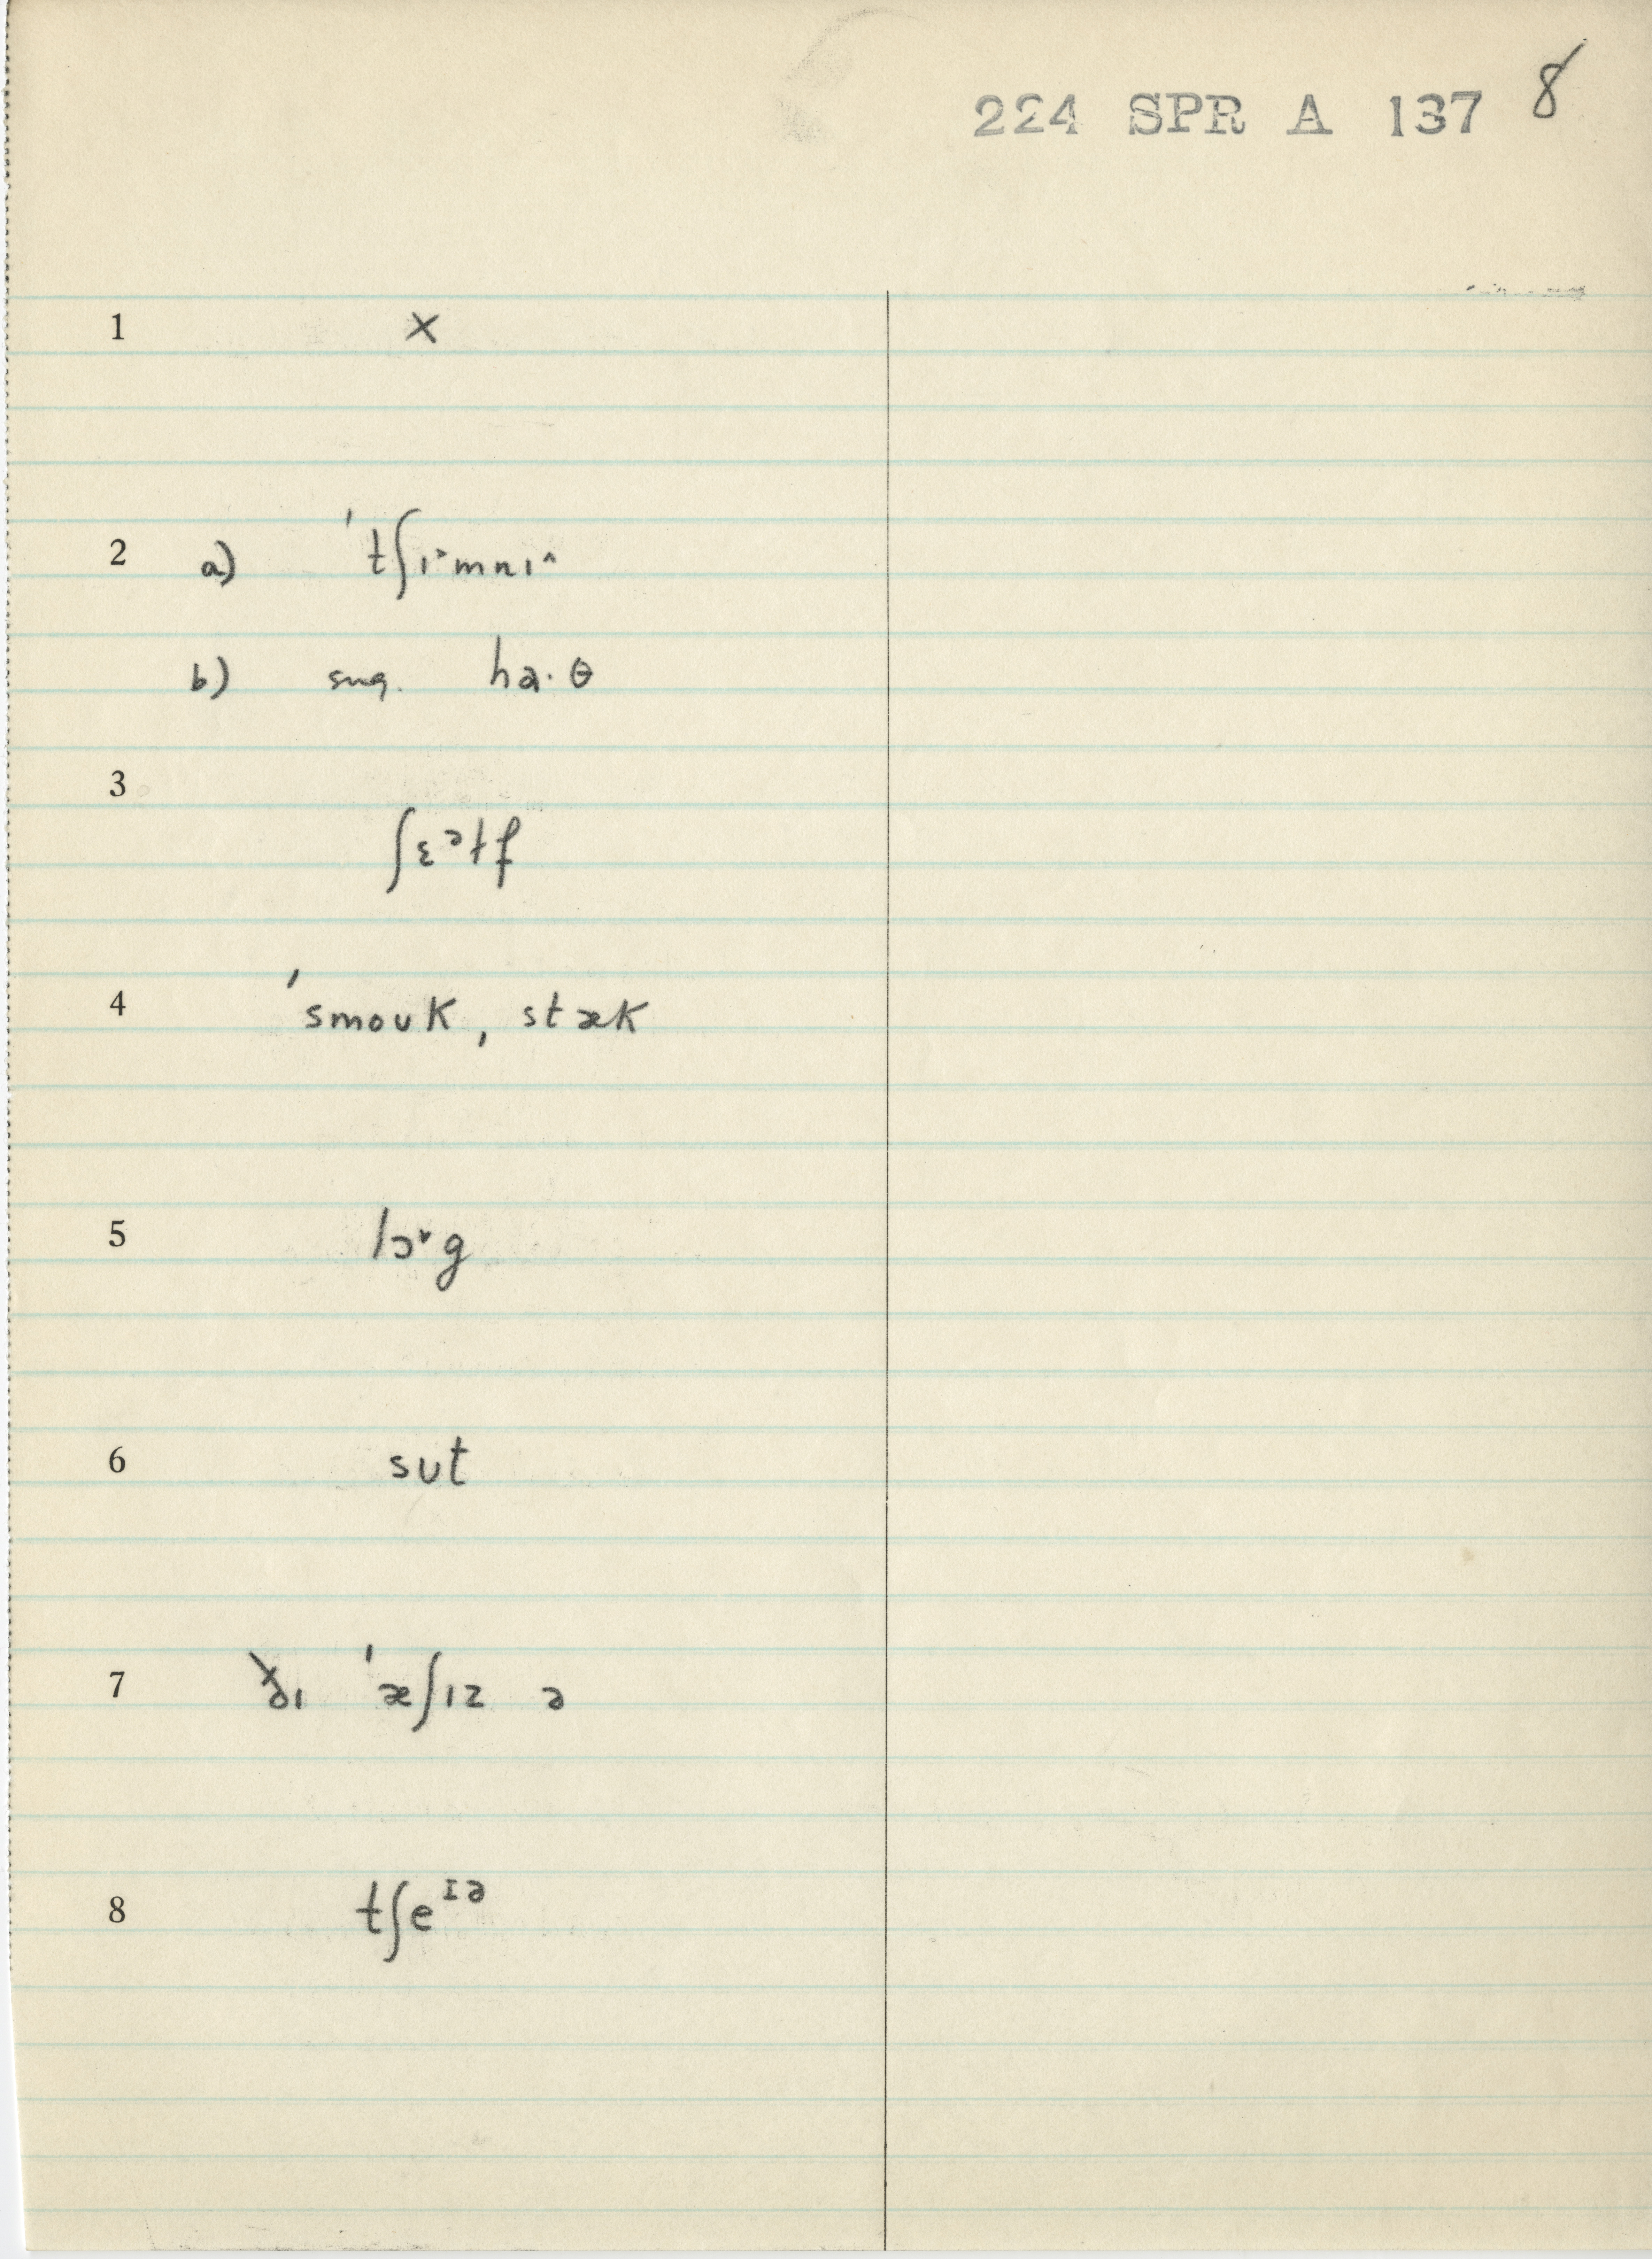 224 SPR A 137 8
1 ×
2 a) ˈtʃɪ˃mnɪ˄
b) sug. ha·θ
3
ʃɛᵊɫf
4 ˈsmoʊk, stæk
5 lɔ˅g
6 sʊt
7 ðɪ ˈæʃɪz ə
8 tʃeᶦᵊ